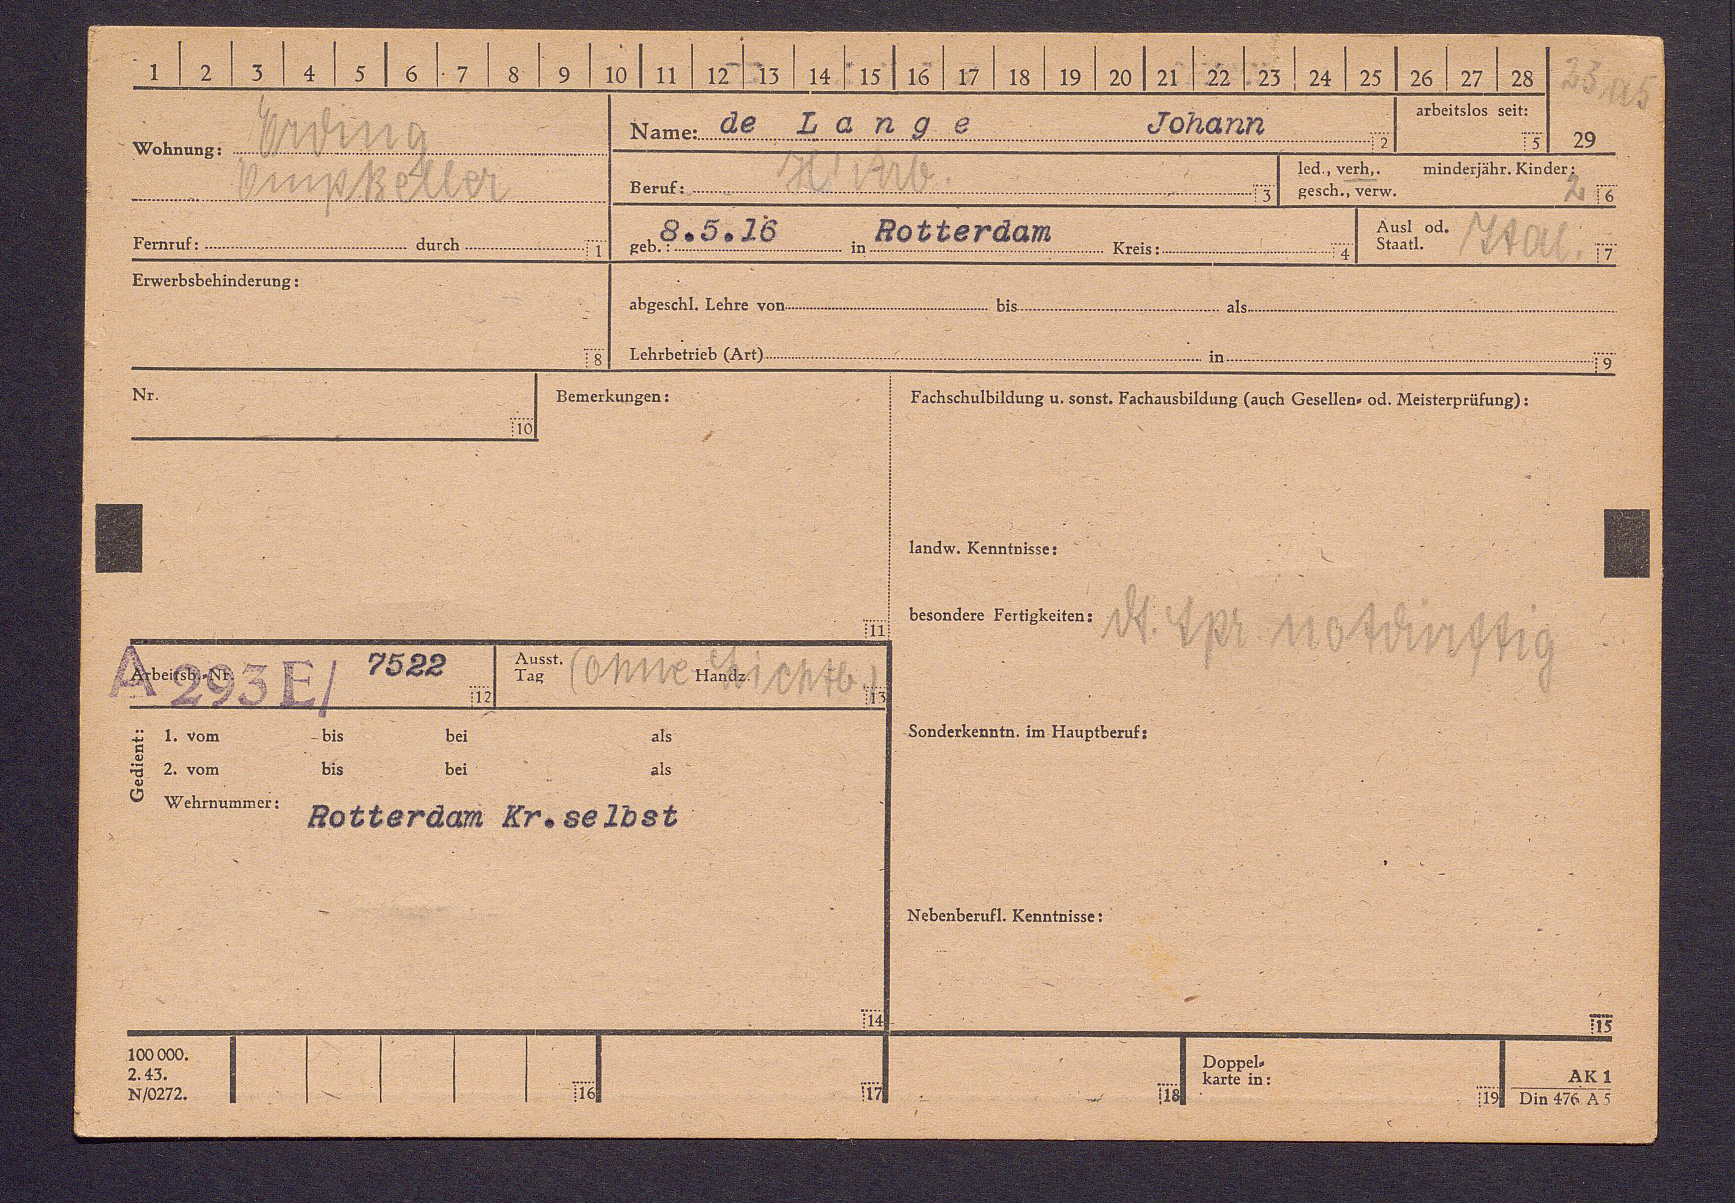 1 2 3 4 5 6 7 8 9 10 11 12 13 14 15 16 17 18 19 20 21 22 23 24 25 26 27 28 29
23 a5
Wohnung: Erding
Name: de Lange Johann 2
arbeitslos seit: 5
Beruf: H'Arb. 3
led., verh., gesch., verw.
minderjähr. Kinder: 2 6
Fernruf: durch 1
geb.: 8.5.16 in Rotterdam Kreis: 4
Ausl od. Staatl. Ital. 7
Erwerbsbehinderung: 8
abgeschl. Lehre von bis als
Lehrbetrieb (Art) in 9
Nr. 10
Bemerkungen: 11
Fachschulbildung u. sonst. Fachausbildung (auch Gesellen- od. Meisterprüfung):
landw. Kenntnisse:
besondere Fertigkeiten: dt. Spr. notdürftig
Arbeitsb.-Nr. A 293E/ 7522 12
Ausst. Tag Handz. (ohne Lichtb.) 13
Sonderkenntn. im Hauptberuf:
Gedient:
1. vom bis bei als
2. vom bis bei als
Wehrnummer: Rotterdam Kr.selbst
14
Nebenberufl. Kenntnisse:
15
100 000.
2. 43.
N/0272.
16 17 18
Doppel-
karte in: 19
AK 1
Din 476 A 5